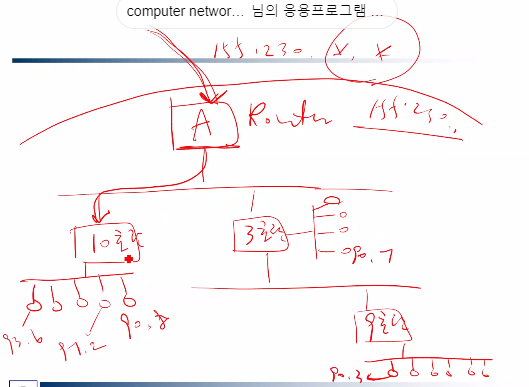 computer networ... 님의 응용프로그램 ...
155.230. x. x
A Router 155.230.
10호관 3호관
90.7
93.6 97.2 90.8
9호관
90.3